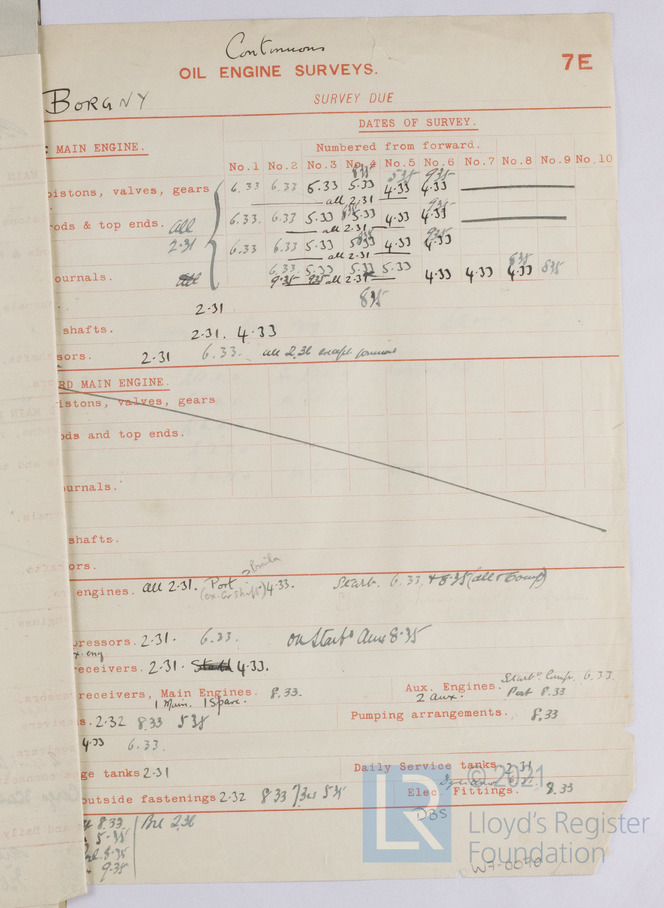 Continuous
OIL ENGINE SURVEYS. 7E
BORGNY SURVEY DUE
DATES OF SURVEY.
MAIN ENGINE. Numbered from forward.
No.1 No.2 No.3 No.4 No.5 No.6 No.7 No.8 No.9 No.10
8.35 5.35 9.35
pistons, valves, gears 6.33 6.33 5.33 5.33 4.33 4.33
all 2.31
rods & top ends. all 6.33. 6.33 5.33 5.33 4.33 4.33
2.31 all 2.31
6.33 6.33 5.33 5.33 4.33 4.33
all 2.31
6.33 5.33 5.33 5.33
ournals. 9.35 9.35 all 2.31 4.33 4.33 4.33 8.35
2.31 8.35
shafts. 2.31. 4.33
sors. 2.31 6.33. all 2.31 except
RD MAIN ENGINE.
istons, valves, gears
ods and top ends.
ournals.
shafts.
ors.
engines. all 2.31. Port 4.33. Starb. 6.33 & 8.35
pressors. 2.31. 6.33. on Starbd Aux 8.35
x. eng.
receivers. 2.31. 4.33.
receivers, Main Engines. 8.33. Aux. Engines. Starbd 6.33
1 Main. 1 Spare. 2 aux. Port 8.33
s. 2.32 8.33 5.35 Pumping arrangements. 8.33
4.33 6.33.
ge tanks 2.31 Daily Service tanks 2.31
outside fastenings 2.32 8.33 5.35 Elec Fittings. 8.33
8.33 2.36
5.35
8.35
9.35
DBS
W7-0070
LR
© 2021
Lloyd's Register
Foundation